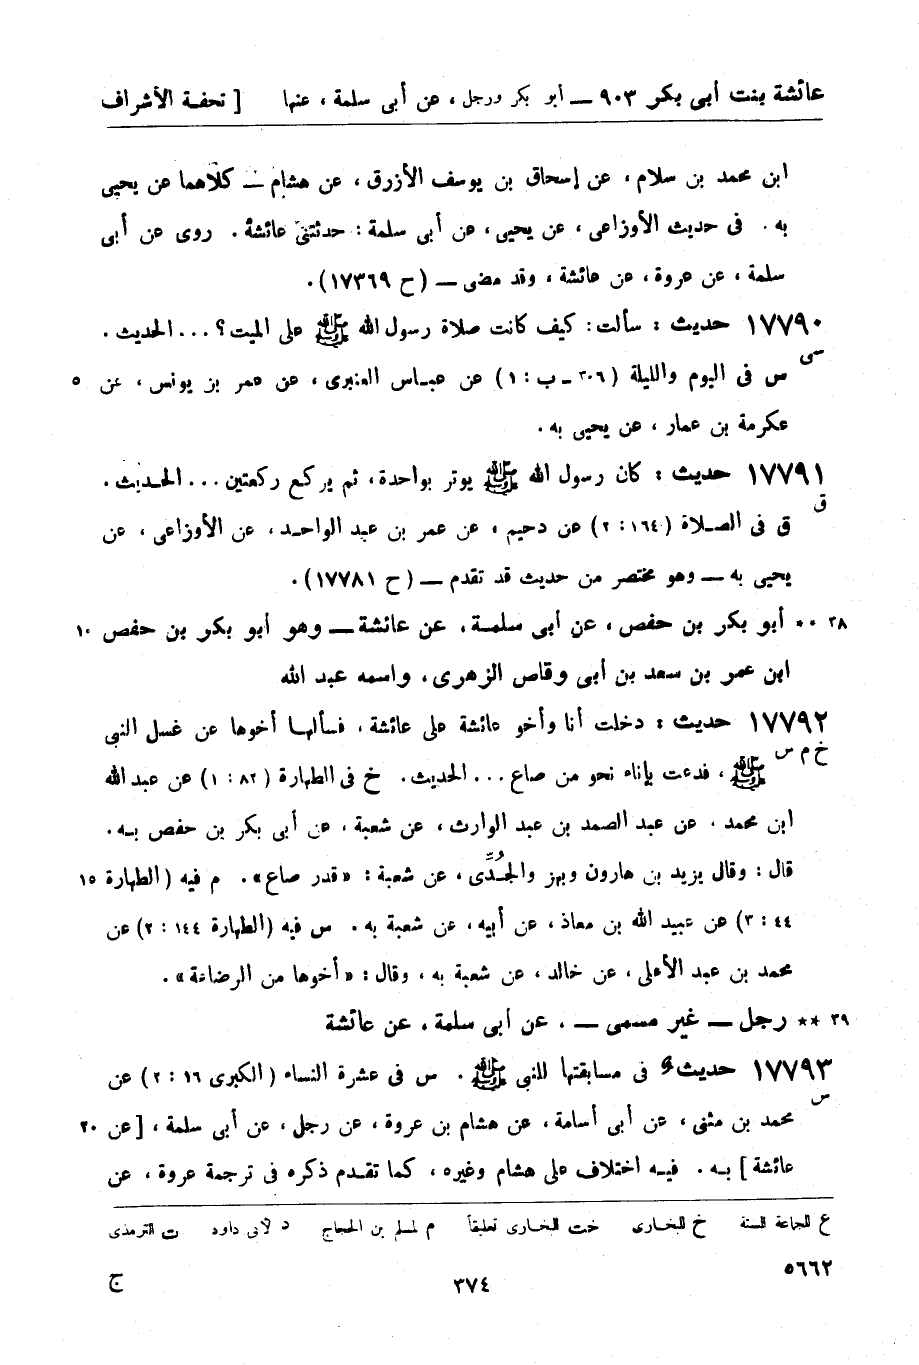 عائشة بنت أبى بكر ٩٠٣ — أبو بكر ورجل ، عن أبى سلمة ، عنها [ تحفة الأشراف
ابن محمد بن سلام ، عن إسحاق بن يوسف الأزرق ، عن هشام — كلاهما عن يحيى
به . فى حديث الأوزاعى ، عن يحيى ، عن أبى سلمة : حدثتنى عائشة . روى عن أبى
سلمة ، عن عروة ، عن عائشة ، وقد مضى — ( ح ١٧٣٦٩ ) .
١٧٧٩٠ حديث : سألت : كيف كانت صلاة رسول الله ﷺ على الميت ؟ ... الحديث .
سى س فى اليوم والليلة ( ٣٠٦ - ب : ١ ) عن عباس العنبرى ، عن عمر بن يونس ، عن ٥
عكرمة بن عمار ، عن يحيى به .
١٧٧٩١ حديث : كان رسول الله ﷺ يوتر بواحدة ، ثم يركع ركعتين ... الحديث .
ق ق فى الصلاة ( ١٦٤ : ٢ ) عن دحيم ، عن عمر بن عبد الواحد ، عن الأوزاعى ، عن
يحيى به — وهو مختصر من حديث قد تقدم — ( ح ١٧٧٨١ ) .
٣٨ ** أبو بكر بن حفص ، عن أبى سلمة ، عن عائشة — وهو أبو بكر بن حفص ١٠
ابن عمر بن سعد بن أبى وقاص الزهرى ، واسمه عبد الله
١٧٧٩٢ حديث : دخلت أنا وأخو عائشة على عائشة ، فسألها أخوها عن غسل النبى
خ م س ﷺ ، فدعت بإناء نحو من صاع ... الحديث . خ فى الطهارة ( ٨٢ : ١ ) عن عبد الله
ابن محمد ، عن عبد الصمد بن عبد الوارث ، عن شعبة ، عن أبى بكر بن حفص به .
قال : وقال يزيد بن هارون وبهز والجُدِّى ، عن شعبة : « قدر صاع » . م فيه ( الطهارة ١٥
٤٤ : ٣ ) عن عبيد الله بن معاذ ، عن أبيه ، عن شعبة به . س فيه ( الطهارة ١٤٤ : ٢ ) عن
محمد بن عبد الأعلى ، عن خالد ، عن شعبة به ، وقال : « أخوها من الرضاعة » .
٣٩ ** رجل — غير مسمى — ، عن أبى سلمة ، عن عائشة
١٧٧٩٣ حديث فى مسابقتها للنبى ﷺ . س فى عشرة النساء ( الكبرى ١٦ : ٢ ) عن
س محمد بن مثنى ، عن أبى أسامة ، عن هشام بن عروة ، عن رجل ، عن أبى سلمة ، [ عن ٢٠
عائشة ] به . فيه اختلاف على هشام وغيره ، كما تقدم ذكره فى ترجمة عروة ، عن
ع للجماعة الستة خ للبخارى خت للبخارى تعليقاً م لمسلم بن الحجاج د لأبى داود ت للترمذى
٥٦٦٢ ٣٧٤ ج